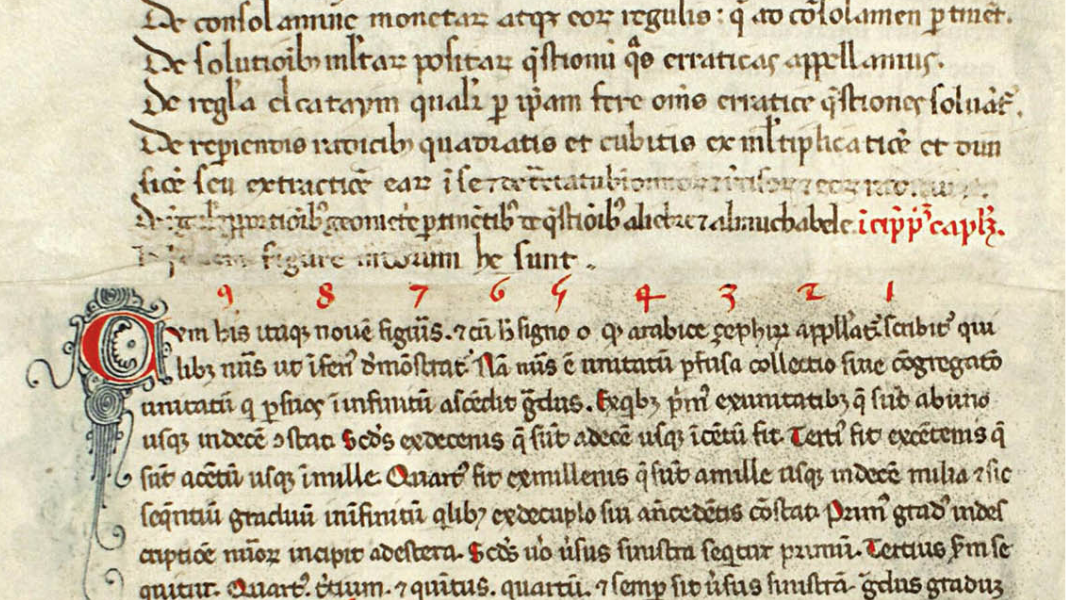 De consolamine monetar atqz eor regulis: q̄ ad cōsolamen ptinēt.
De solutioibʒ mltar positar q̄stionū q̄s erraticas appellamus.
De regl̄a elcataym qualr̄ p ip̄am fere om̄s erratice q̄stiones soluāt᷑.
De repiendis radicibʒ quadratis et cubitis ex ml̄tiplicatiōē et diui
siōē seu extractiōē ear ī se
geometⁱe ptinētibʒ de q̄stioibʒ aliebre ⁊ almuchabele. īcip̄ p̄ʳ caplʒ.
figure he sunt.
9 8 7 6 5 4 3 2 1
Cvm his itaqʒ nouē figuⁱs. ⁊ cū h̄ signo 0 qᵈ arabice zephirʒ appllat᷑ scribit᷑ qui
libʒ nūs ut īferⁱ dⁱmōstrat᷑. Nā nūs ē unitatū pfusa collectio siue cōgregatō
unitatū q̄ p suos ī infinitū ascēdit g̃dus. Exqbʒ pⁱm᷒ ex unitatibʒ q̄ sūt ab uno
usqʒ in decē ɔstat. Scd᷒s ex decenis q̄ sūt a decē usqʒ ī cētū fit. Terti᷒ fit ex cētenis q̄
sūt a cētū usqʒ ī mille. Quart᷒ fit ex millenis q̄ sūt a mille usqʒ in decē milia ⁊ sic
seq̄ntiū graduū in īfinitū qlibʒ ex decuplo sui añcedētis cōstat. Prim᷒ grad᷒ in des
criptiōē nūor incipit a dextera. Scd᷒s uͦo ūsus sinistra sequit᷑ primū. Tertius sc̄dm se
quitur. Quart᷒. tⁱtium. ⁊ quītus. quartū. ⁊ semp sic ūsus sinistrā. g̃dus graduʒ